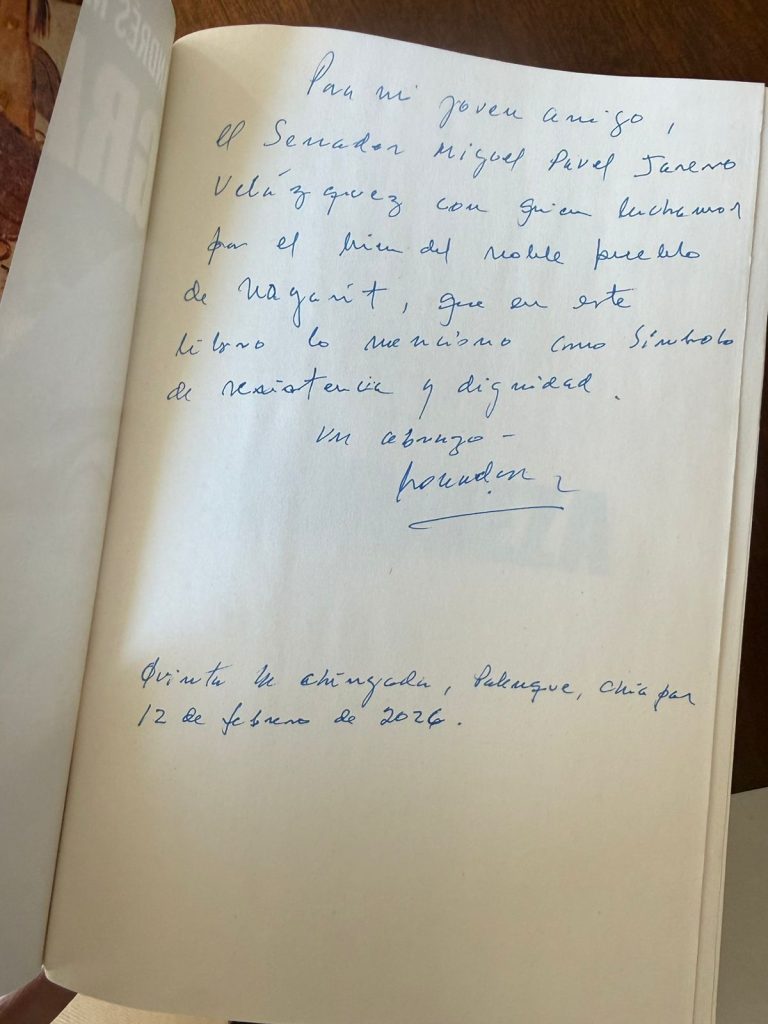 Para mi joven amigo,
el Senador Miguel Pavel Jareno
Velázquez con quien luchamos
por el bien del noble pueblo
de Nayarit, que en este
libro lo menciono como símbolo
de resistencia y dignidad.
Un abrazo -
Quinta la chingada, Palenque, Chiapas
12 de febrero de 2026.